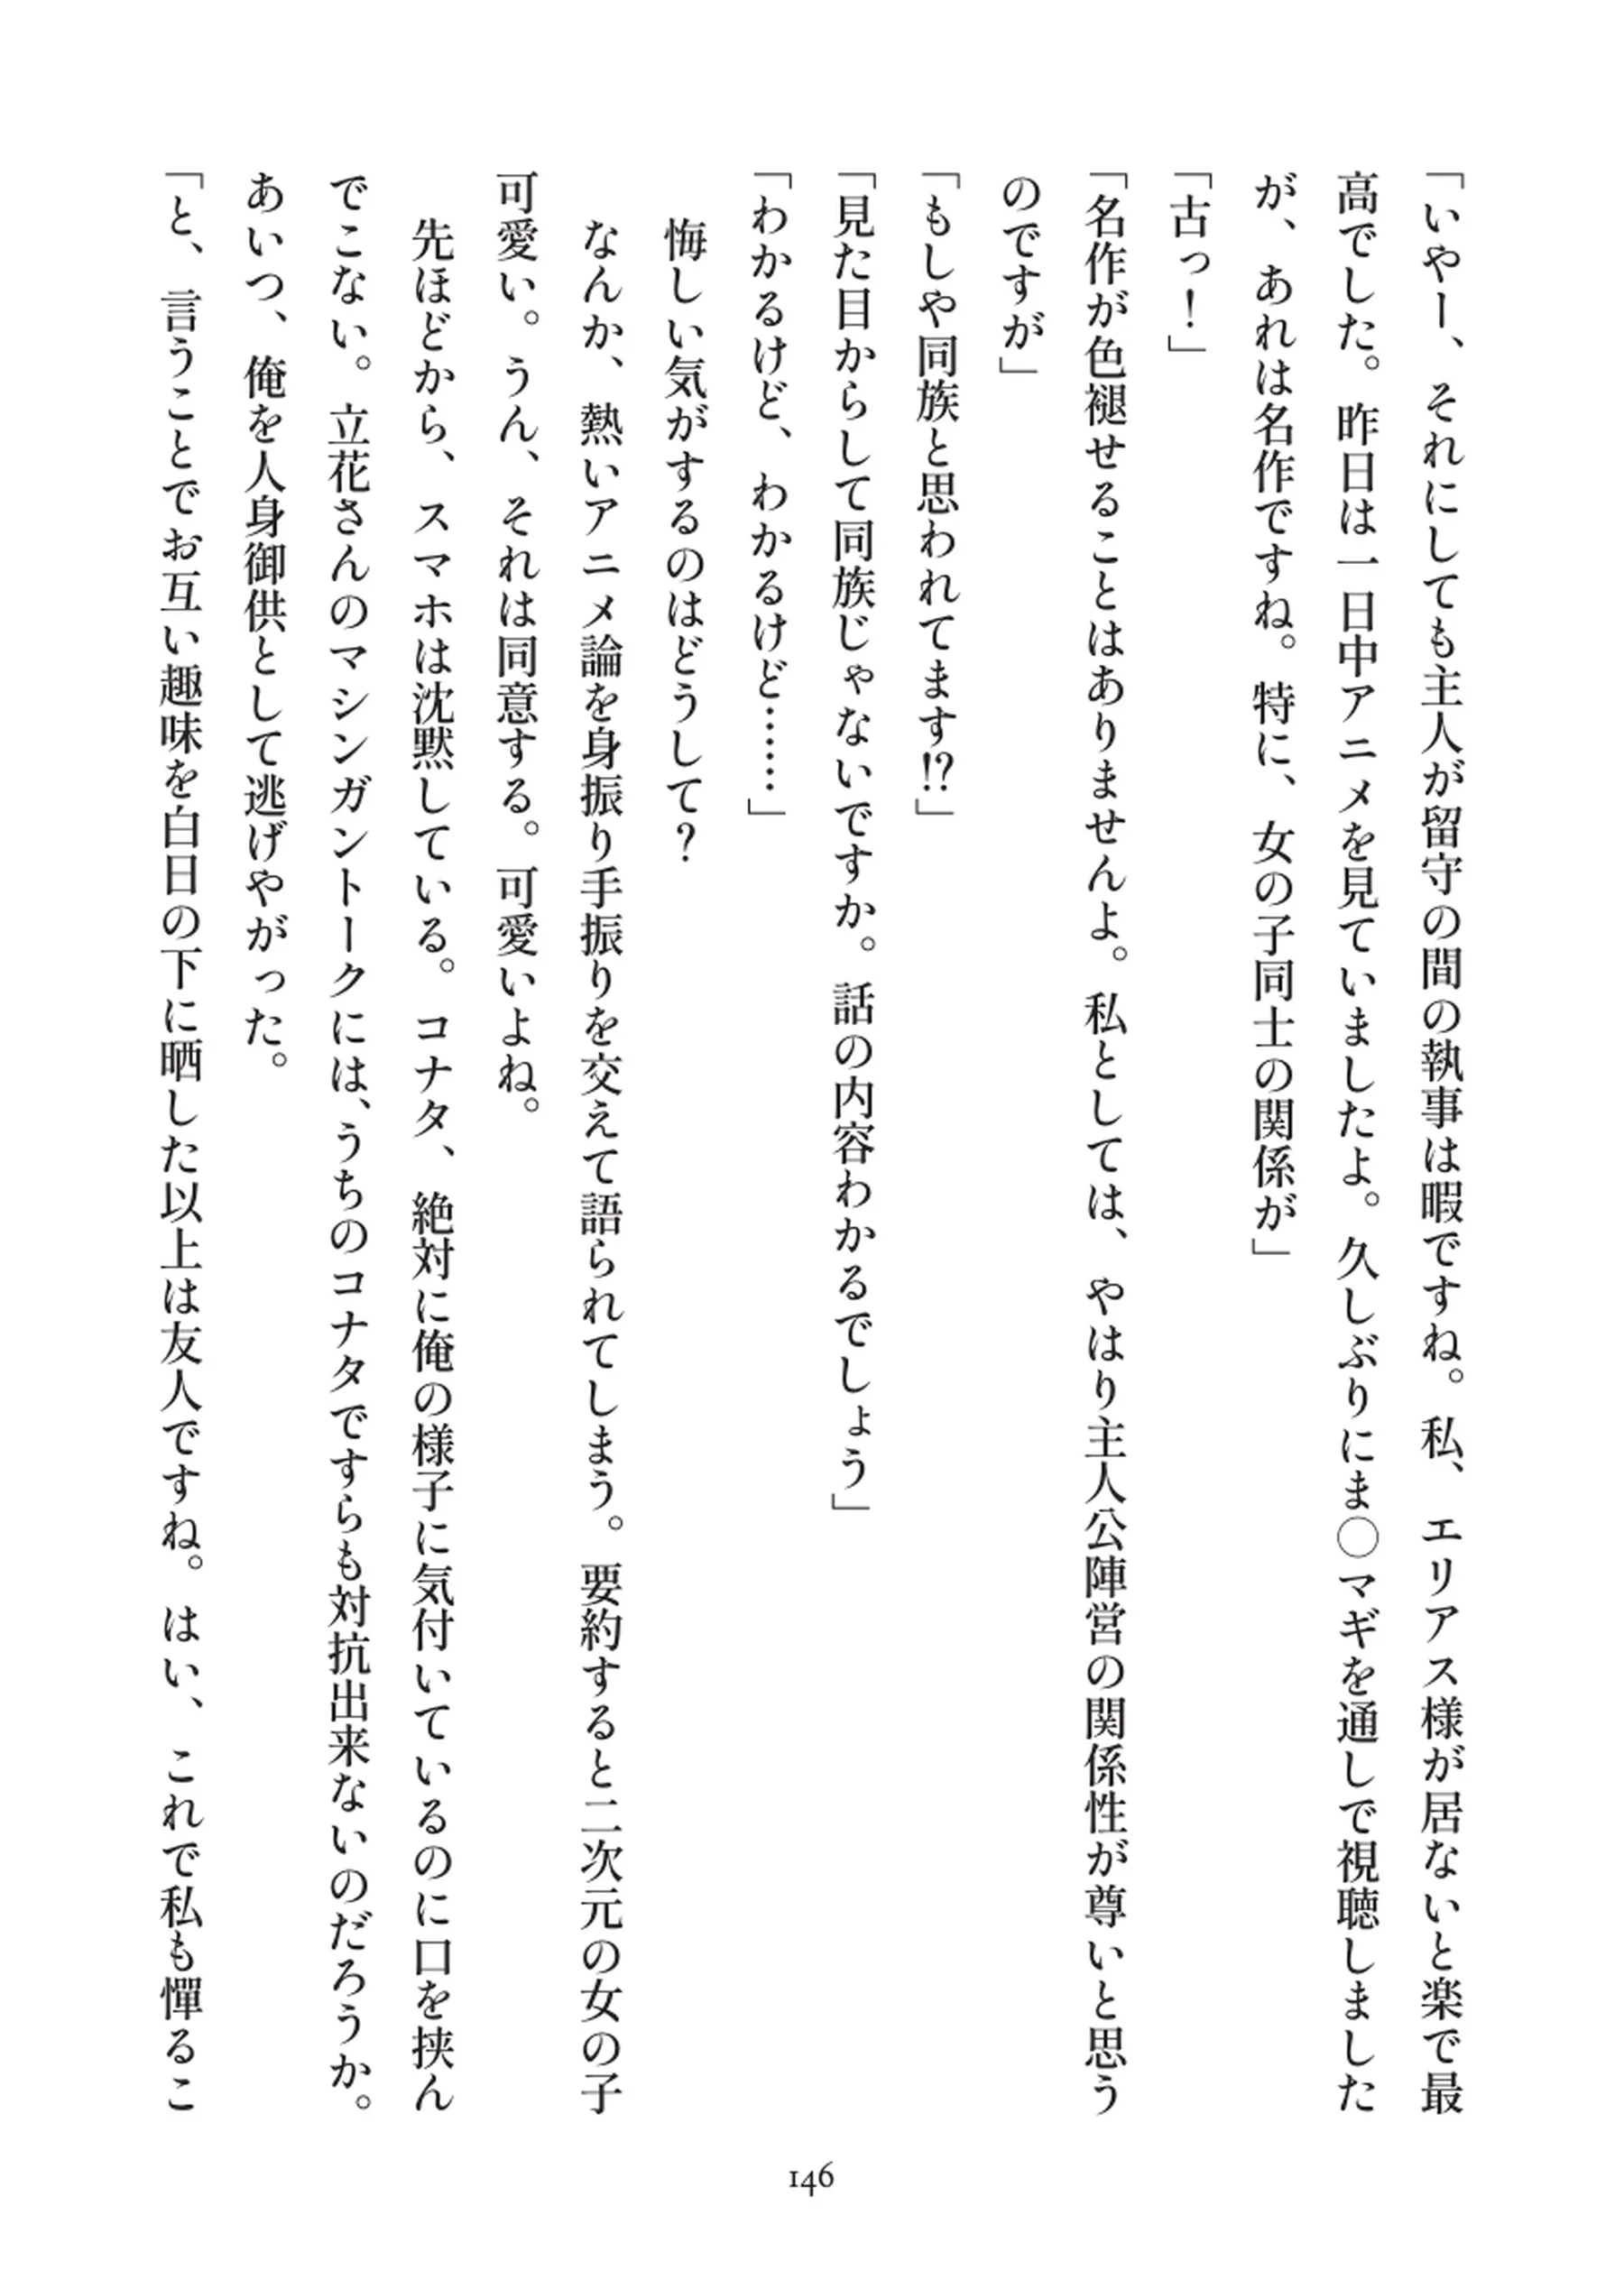 「いやー、それにしても主人が留守の間の執事は暇ですね。私、エリアス様が居ないと楽で最
高でした。昨日は一日中アニメを見ていましたよ。久しぶりにま◯マギを通しで視聴しました
が、あれは名作ですね。特に、女の子同士の関係が」
「古っ！」
「名作が色褪せることはありませんよ。私としては、やはり主人公陣営の関係性が尊いと思う
のですが」
「もしや同族と思われてます⁉」
「見た目からして同族じゃないですか。話の内容わかるでしょう」
「わかるけど、わかるけど……」
悔しい気がするのはどうして？
なんか、熱いアニメ論を身振り手振りを交えて語られてしまう。要約すると二次元の女の子
可愛い。うん、それは同意する。可愛いよね。
先ほどから、スマホは沈黙している。コナタ、絶対に俺の様子に気付いているのに口を挟ん
でこない。立花さんのマシンガントークには、うちのコナタですらも対抗出来ないのだろうか。
あいつ、俺を人身御供として逃げやがった。
「と、言うことでお互い趣味を白日の下に晒した以上は友人ですね。はい、これで私も憚るこ
146